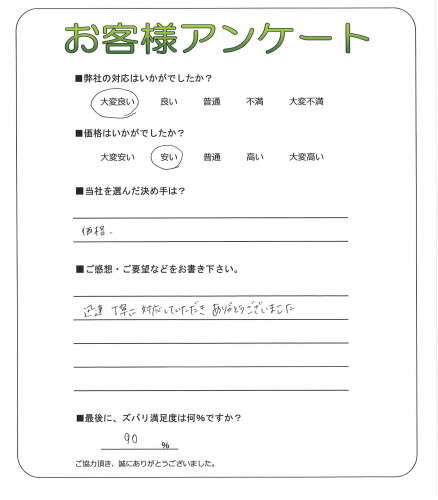 お客様アンケート
■弊社の対応はいかがでしたか？
大変良い 良い 普通 不満 大変不満
■価格はいかがでしたか？
大変安い 安い 普通 高い 大変高い
■当社を選んだ決め手は？
価格.
■ご感想・ご要望などをお書き下さい。
迅速 丁寧に 対応していただき ありがとうございました
■最後に、ズバリ満足度は何％ですか？
90 %
ご協力頂き、誠にありがとうございました。